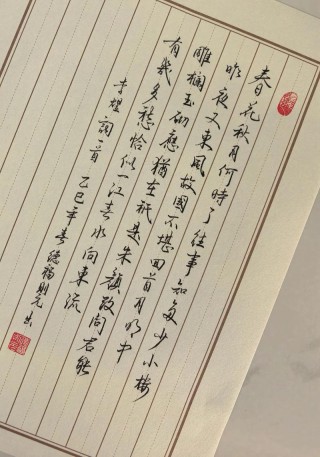 春花秋月何時了往事知多少小樓
昨夜又東風故國不堪回首月明中
雕欄玉砌應猶在祇是朱顏改問君能
有幾多愁恰似一江春水向東流
李煜詞一首 乙巳年春 德福